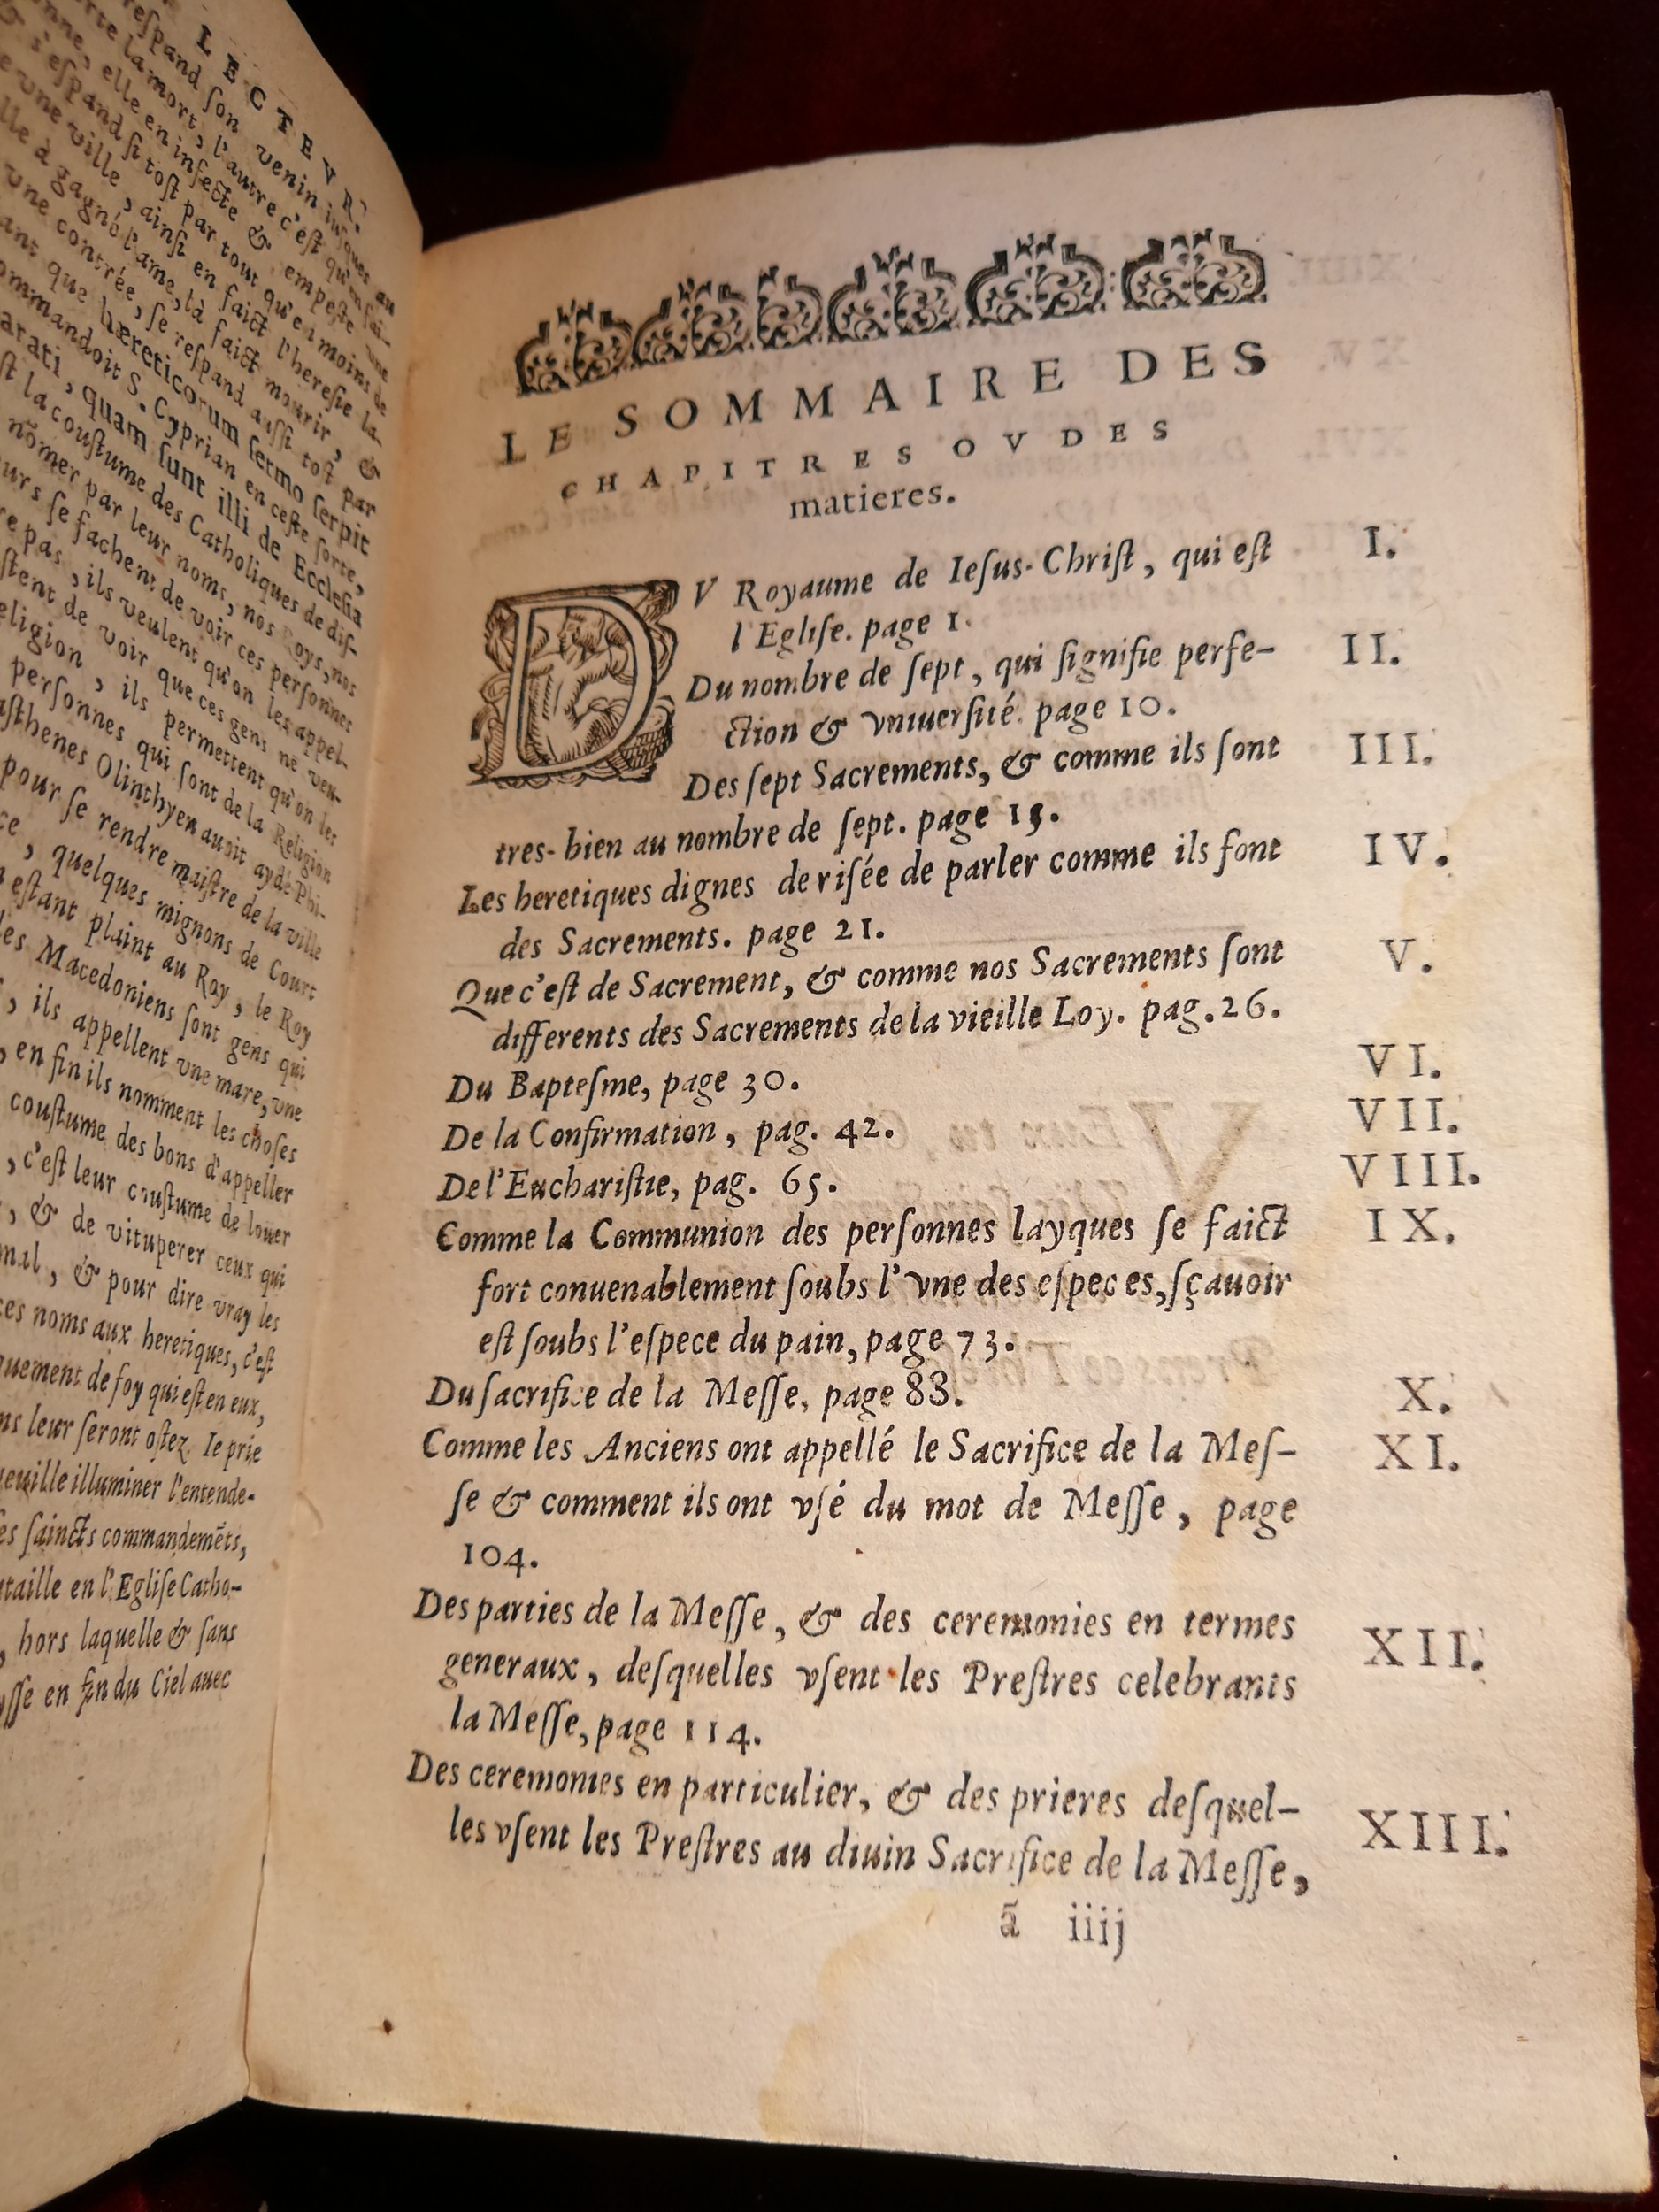 LECTEVR.
respand son venin iusques au
la mort, l'autre c'est qu'en fai-
elle en infecte & empeste vne
s'espand si tost par tout qu'en moins de
vne ville, ainsi en faict l'heresie la-
à gagné l'ame, là faict mourir, &
vne contrée, se respand aussi tost par
que hæreticorum sermo serpit
commandoit S. Cyprian en ceste sorte,
quam sunt illi de Ecclesia
la coustume des Catholiques de dis-
nõmer par leur noms, nos Roys, nos
se fachent de voir ces personnes
pas, ils veulent qu'on les appel-
de voir que ces gens ne veu-
religion, ils permettent qu'on les
personnes qui sont de la Religion
Olinthyen auoit aydé Phi-
pour se rendre maistre de la ville
quelques mignons de Court
estant plaint au Roy, le Roy
les Macedoniens sont gens qui
, ils appellent vne mare, vne
, en fin ils nomment les choses
coustume des bons d'appeller
, c'est leur coustume de louer
, & de vituperer ceux qui
mal, & pour dire vray les
ces noms aux heretiques, c'est
de foy qui est en eux,
leur seront ostez. Ie prie
vueille illuminer l'entende-
saincts commandemẽts,
en l'Eglise Catho-
, hors laquelle & sans
en fin du Ciel auec
LE SOMMAIRE DES
CHAPITRES OV DES
matieres.
DV Royaume de Iesus-Christ, qui est I.
l'Eglise. page 1.
Du nombre de sept, qui signifie perfe- II.
ction & vniuersité. page 10.
Des sept Sacrements, & comme ils sont III.
tres-bien au nombre de sept. page 15.
Les heretiques dignes de risée de parler comme ils font IV.
des Sacrements. page 21.
Que c'est de Sacrement, & comme nos Sacrements sont V.
differents des Sacrements de la vieille Loy. pag. 26.
Du Baptesme, page 30. VI.
De la Confirmation, pag. 42. VII.
De l'Eucharistie, pag. 65. VIII.
Comme la Communion des personnes layques se faict IX.
fort conuenablement soubs l'vne des especes, sçauoir
est soubs l'espece du pain, page 73.
Du sacrifice de la Messe, page 83. X.
Comme les Anciens ont appellé le Sacrifice de la Mes- XI.
se & comment ils ont vsé du mot de Messe, page
104.
Des parties de la Messe, & des ceremonies en termes XII.
generaux, desquelles vsent les Prestres celebrants
la Messe, page 114.
Des ceremonies en particulier, & des prieres desquel- XIII.
les vsent les Prestres au diuin Sacrifice de la Messe,
ã iiij